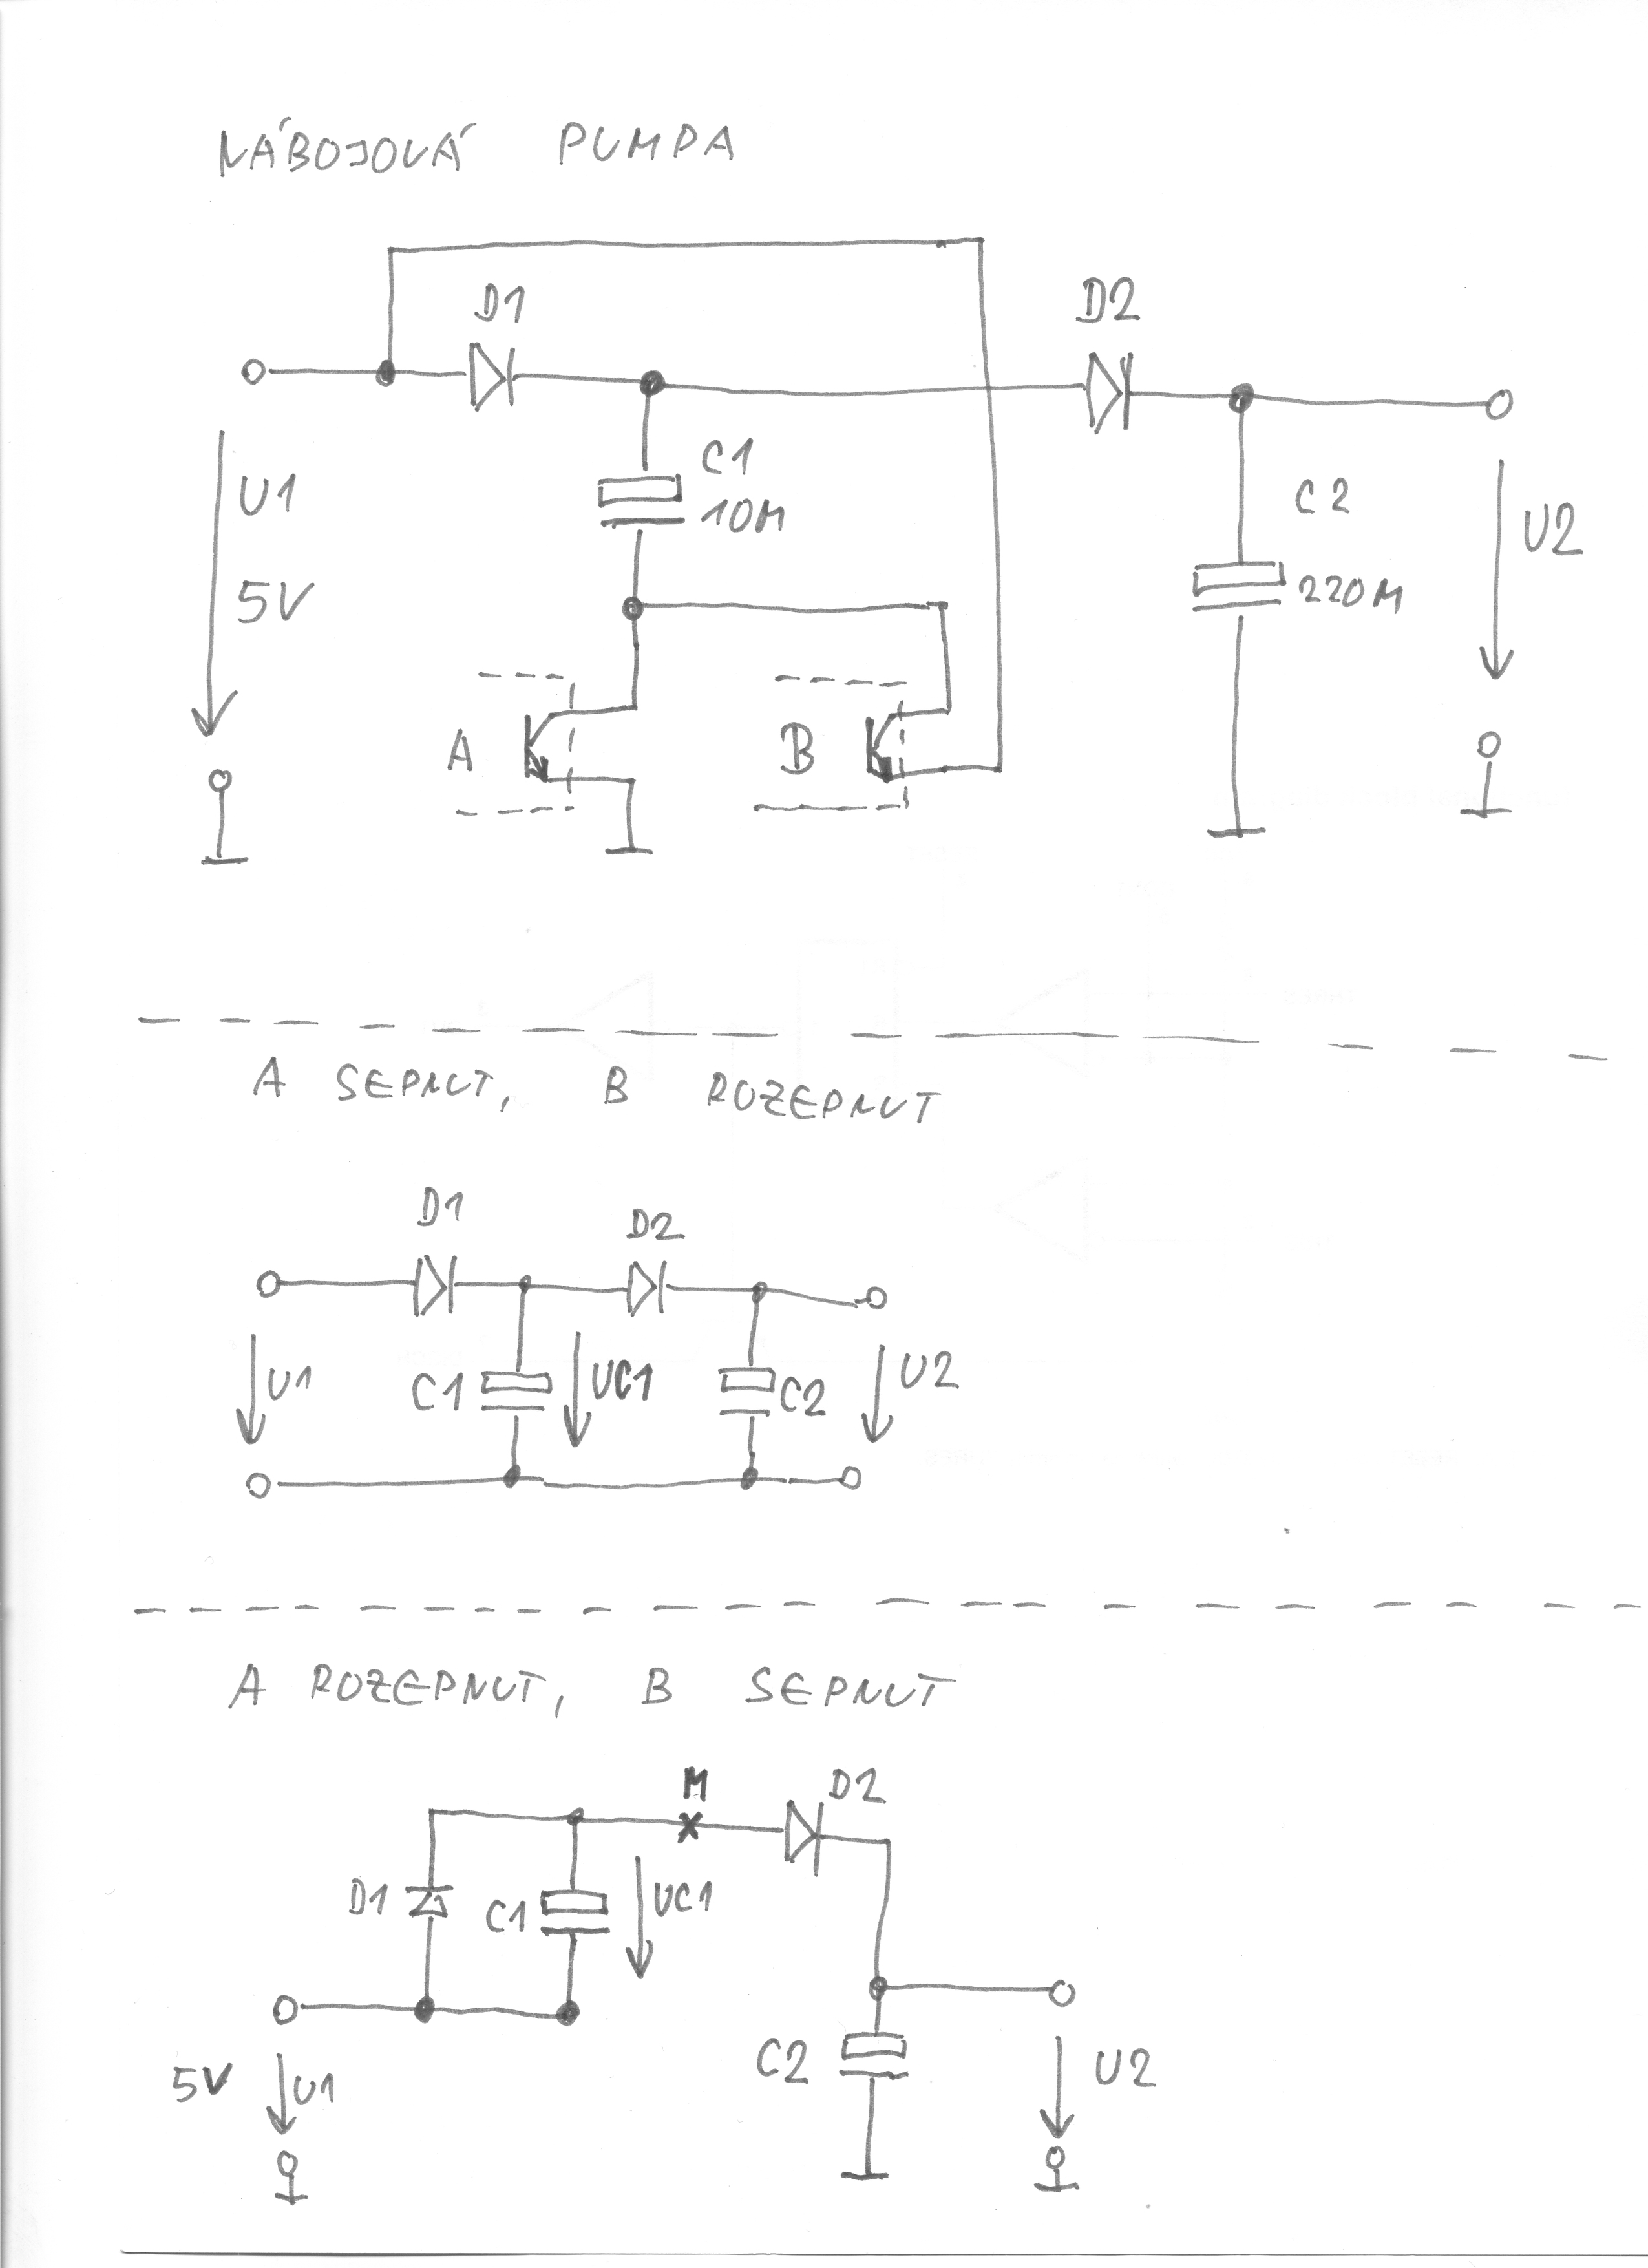 NÁBOJOVÁ PUMPA
D1
D2
C1
10M
U1
5V
C2
220M
U2
A
B
A SEPNUT, B ROZEPNUT
D1
D2
U1
C1
UC1
C2
U2
A ROZEPNUT, B SEPNUT
M
D2
D1
C1
UC1
5V
U1
C2
U2